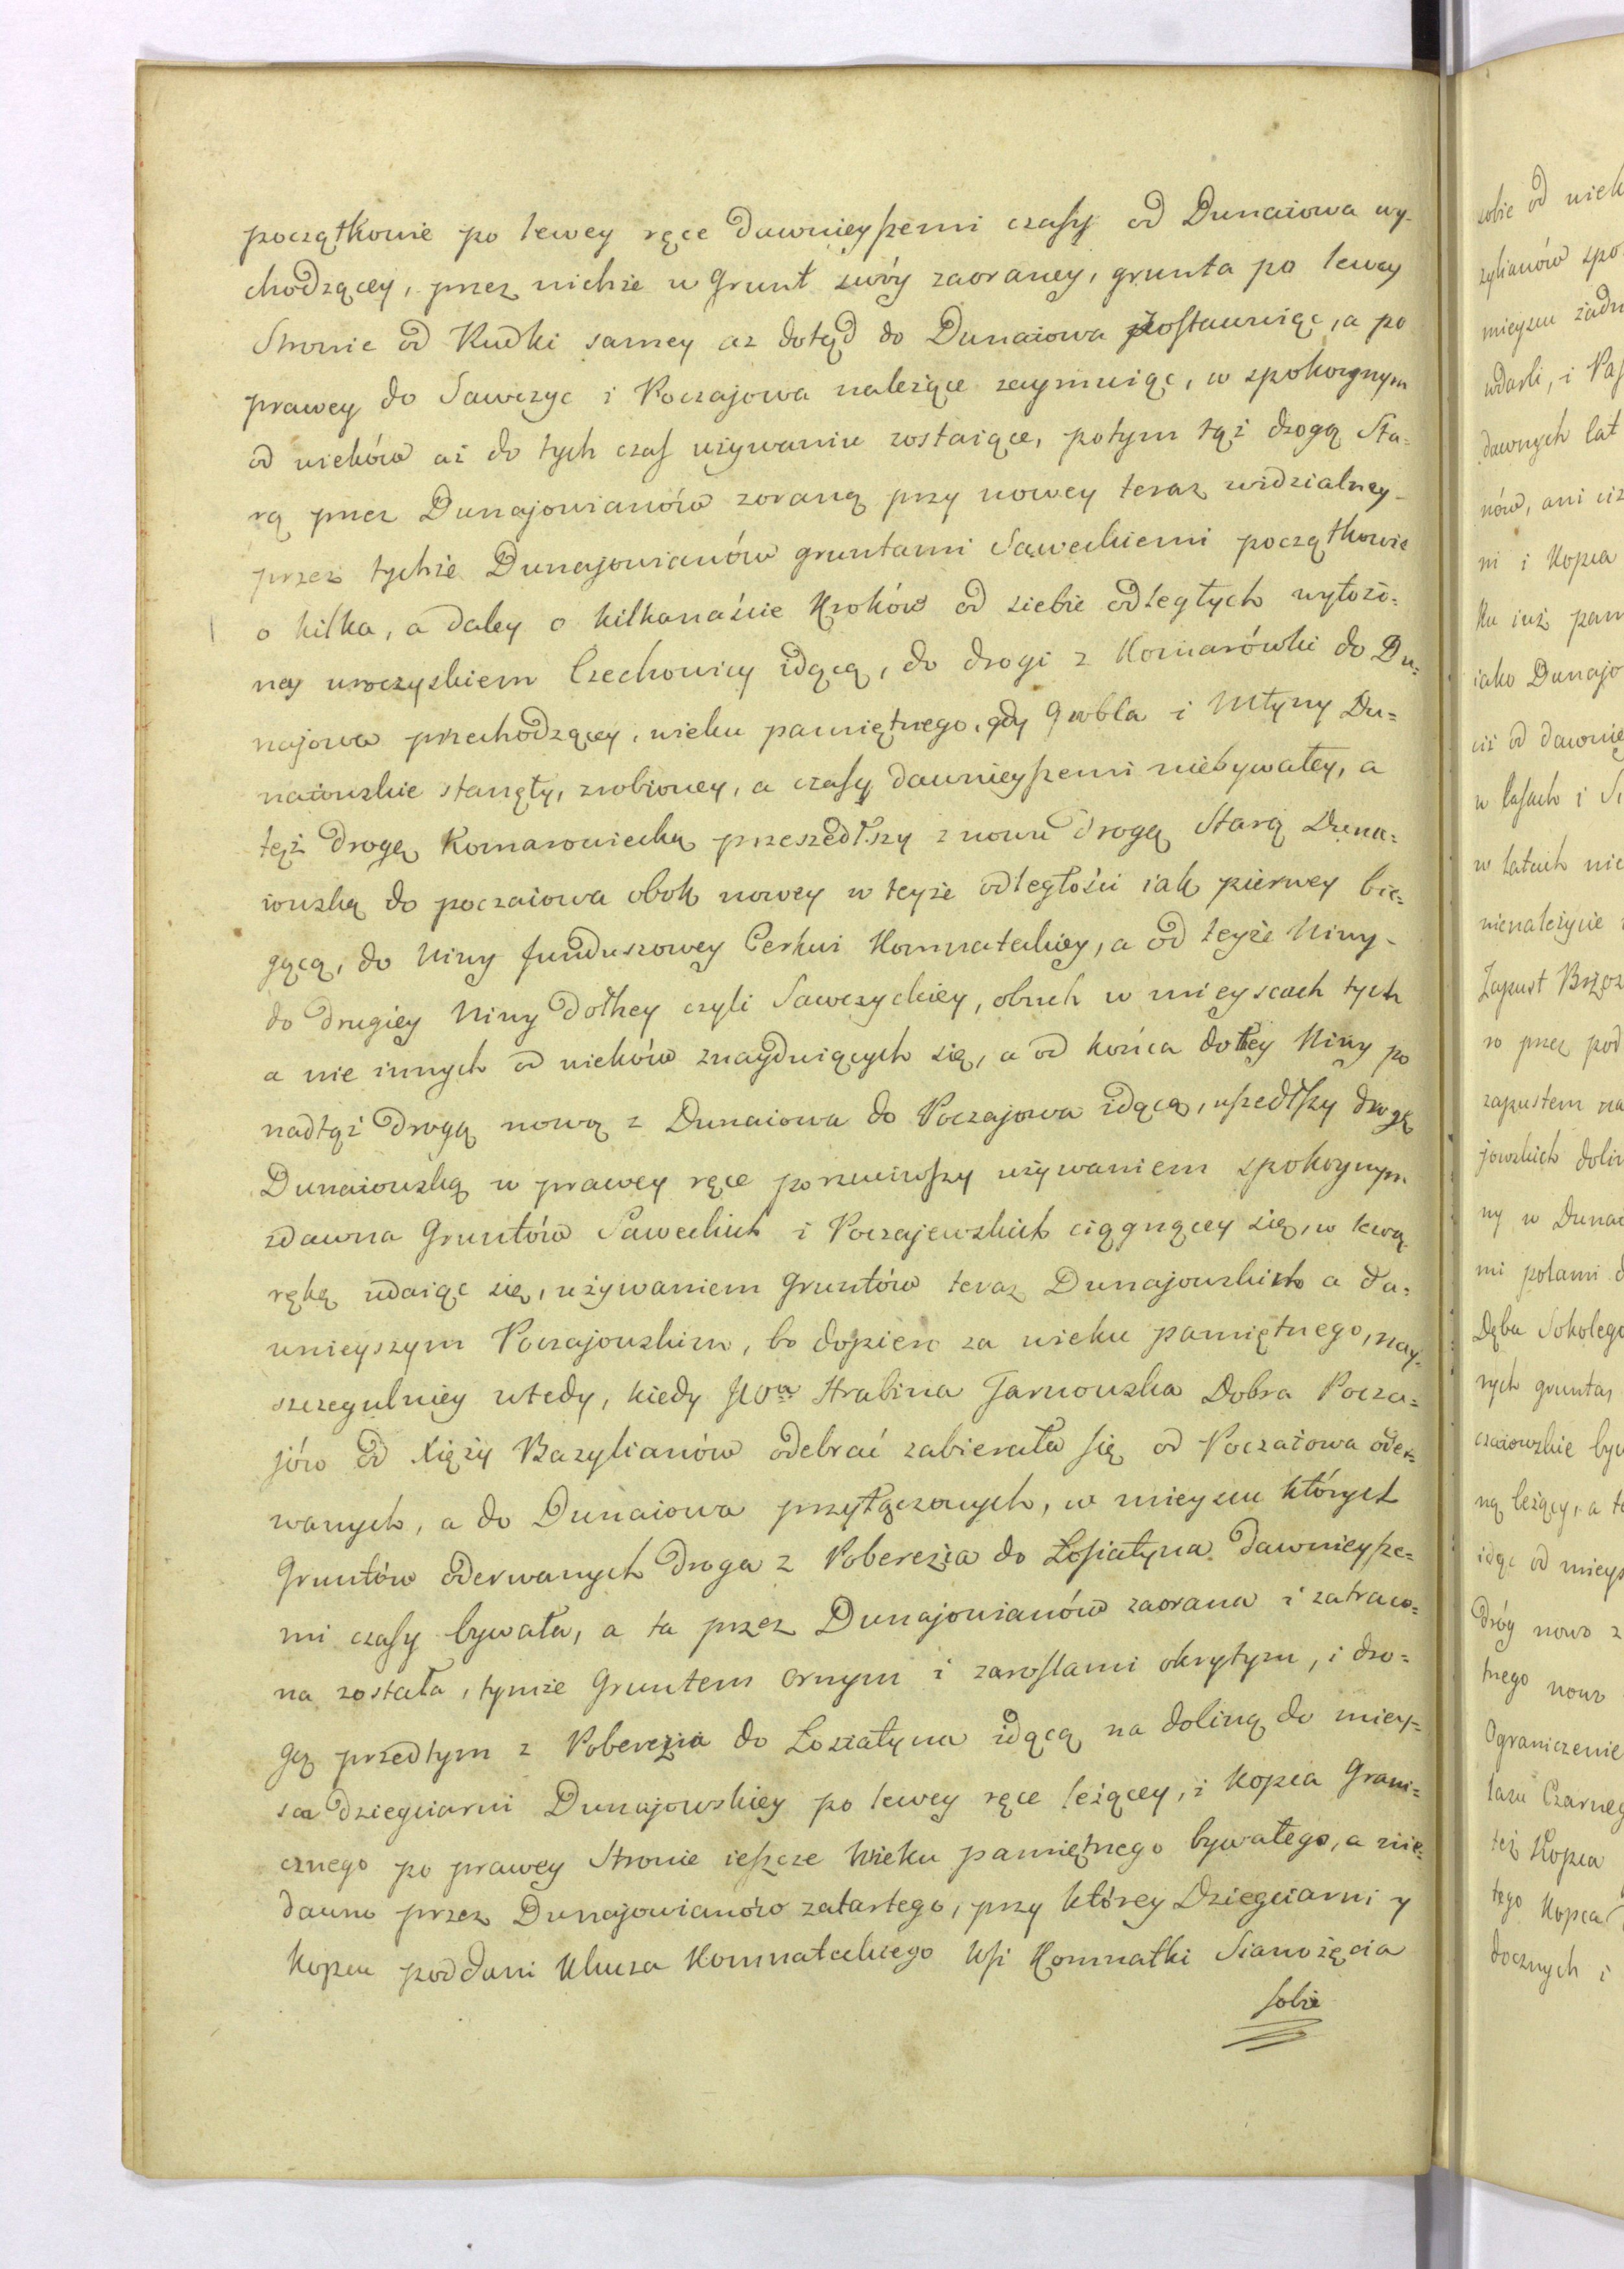 początkowie po lewey ręce dawnieyszemi czasy od Dunaiowa wy-
chodzącey, przez nichże w Grunt swóy zaoraney, grunta po lewey
Stronie od Rudki samey az dotąd do Dunaiowa zostawuiąc, a po
prawey do Sawczyc i Poczajowa należące zaymuiąc, w spokoynym
od wieków aż do tych czas używaniu zostaiące, potym tąż drogą Sta=
rą przez Dunajowianów zoraną przy nowey teraz widzialney
przez tychże Dunajowianów gruntami Saweckiemi początkowie
o kilka, a daley o kilkanaście Kroków od siebie odległych wyłożo=
ney uroczyskiem Czechowicy idącą, do drogi z Komarówki do Du=
najowa przechodzącey, wieku pamiętnego, gdy Grobla i Młyny Du=
naiowskie stanęły, zrobioney, a czasy dawnieyszemi niebywałey, a
tęż drogę Komarowiecką przeszedłszy znowu drogą Starą Duna=
iowską do poczaiowa obok nowey w teyże odległości iak pierwey bie=
gącą, do Niwy funduszowey Cerkwi Komnateckiey, a od teyże Niwy
do drugiey Niwy Dołhey czyli Sawczyckiey, obuch w mieyscach tych
a nie innych od wieków znayduiących się, a od końca dołhey Niwy po
nadtąż drogą nową z Dunaiowa do Poczajowa idącą, uszedłszy drogę
Dunaiowską w prawey ręce porzuciwszy używaniem spokoynym
zdawna Gruntów Saweckich i Poczajewskich ciągnącey się, w lewą
rękę udaiąc się, używaniem Gruntów teraz Dunajowskich a da=
wnieyszym Poczajowskim, bo dopiero za wieku pamiętnego, nay=
szczegulniey wtedy, kiedy JWa Hrabina Tarnowska Dobra Pocza=
jów od Xięży Bazylianów odebrać zabierała się od Poczaiowa oder=
wanych, a do Dunaiowa przyłączonych, w mieyscu których
Gruntów oderwanych droga z Pobereżia do Łosiatyna dawnieysze=
mi czasy bywała, a ta przez Dunajowianów zaorana i zatraco=
na została, tymże Gruntem ornym i zaroslami okrytym, i dro=
gą przedtym z Pobereżia do Łosiatyna idącą na dolinę do miey=
sca Dziegciarni Dunajowskiey po lewey ręce leżącey, i Kopca Grani=
cznego po prawey Stronie ieszcze wieku pamiętnego bywałego, a nie=
dawno przez Dunajowianów zatartego, przy którey Dziegciarni y
Kopcu poddani Klucza Komnateckiego Wsi Komnatki Sianożęcia
sobie